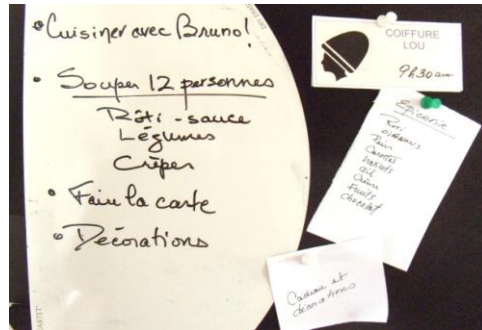 • Cuisiner avec Bruno!
• Souper 12 personnes
Rôti - sauce
Légumes
Crêpes
• Faire la carte
• Décorations
COIFFURE
LOU
9h30 am
Epicerie
Rôti
oignons
Pain
Carottes
Haricots
ail
Crème
Fruits
chocolat
Cadeau et
décorations